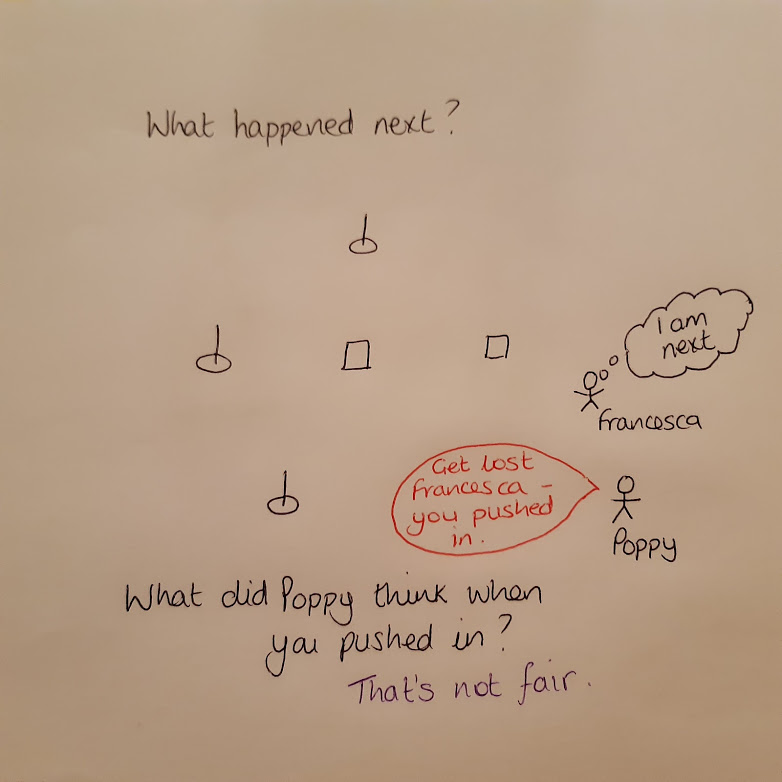 What happened next?
I am
next
Francesca
Get lost
Francesca -
you pushed
in.
Poppy
What did Poppy think when
you pushed in?
That's not fair.